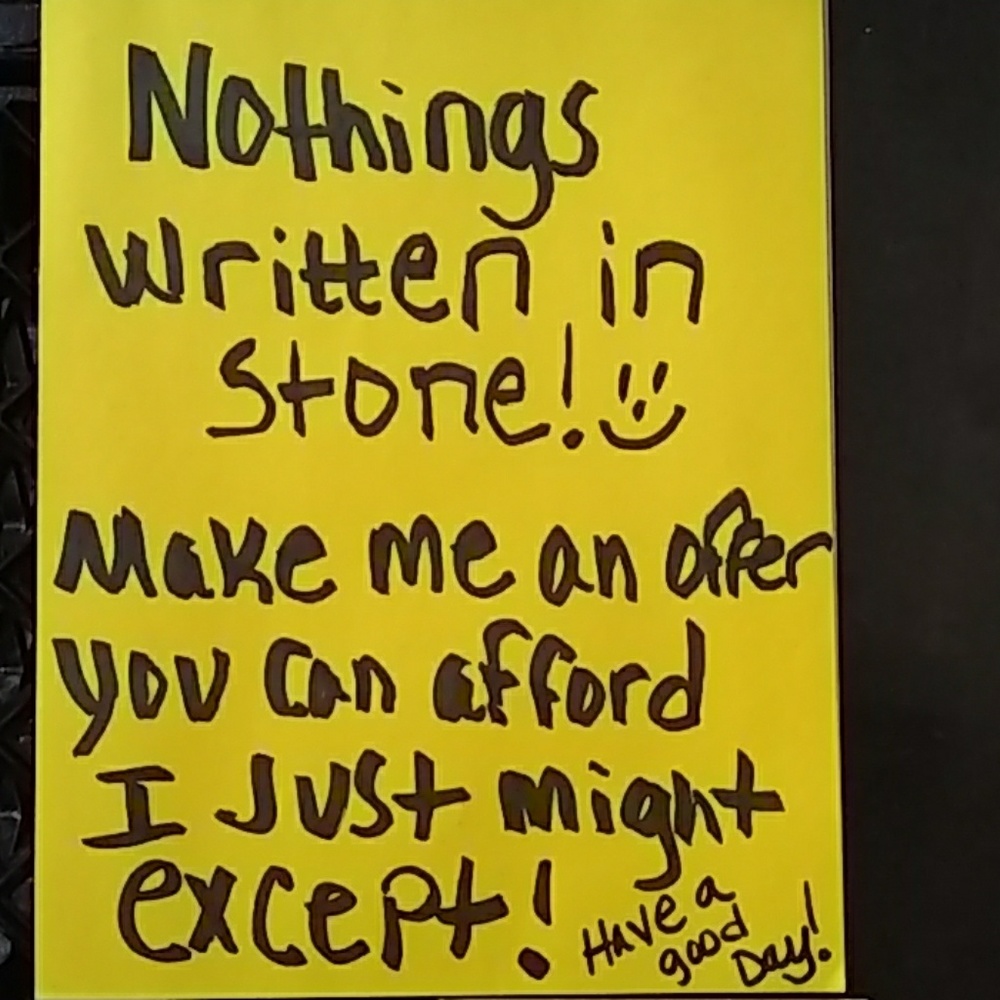 Nothings
written in
Stone!
Make me an offer
you can afford
I Just might
except!
Have a
good
Day!